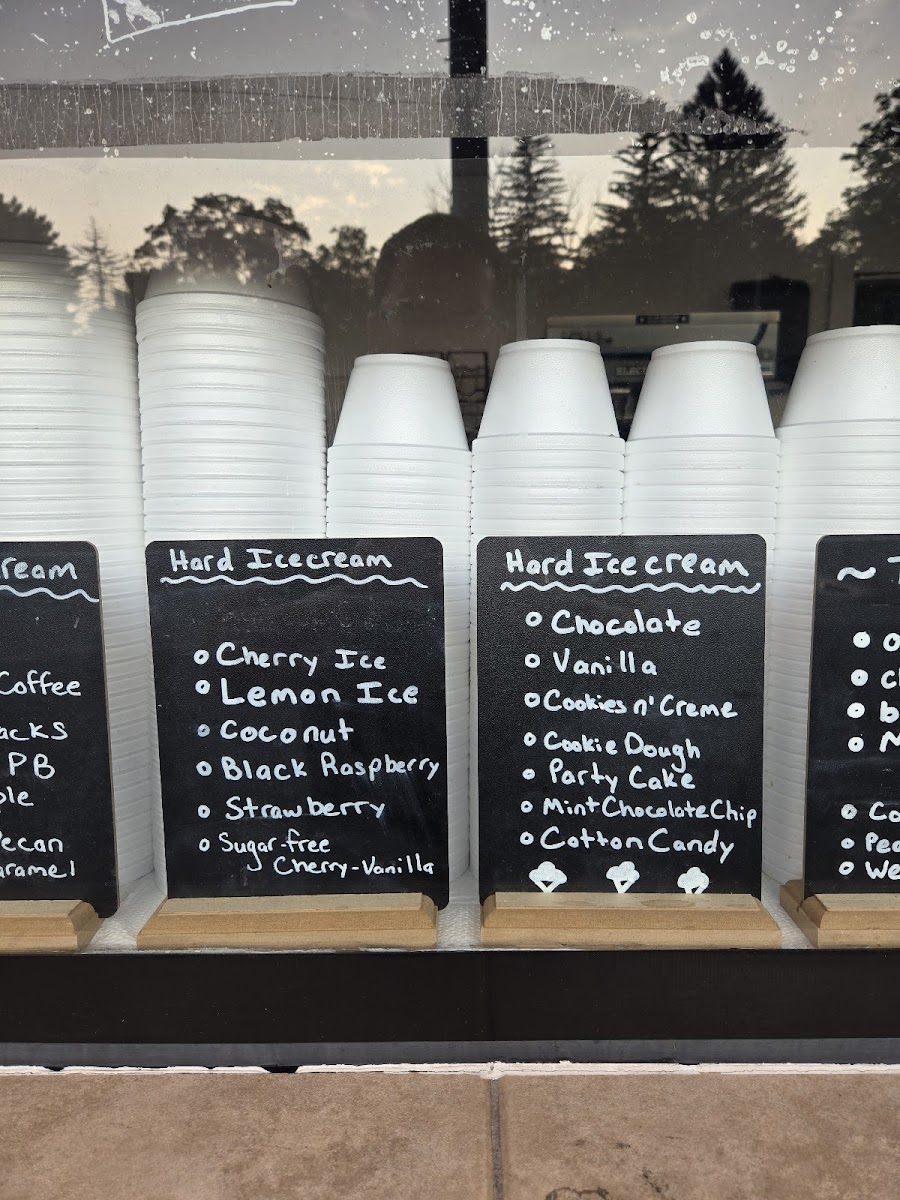 Coffee
PB
Hard Icecream
Cherry Ice
Lemon Ice
Coconut
Black Raspberry
Strawberry
Sugar-free
Cherry-Vanilla
Hard Icecream
Chocolate
Vanilla
Cookies n' Creme
Cookie Dough
Party Cake
Mint Chocolate Chip
Cotton Candy